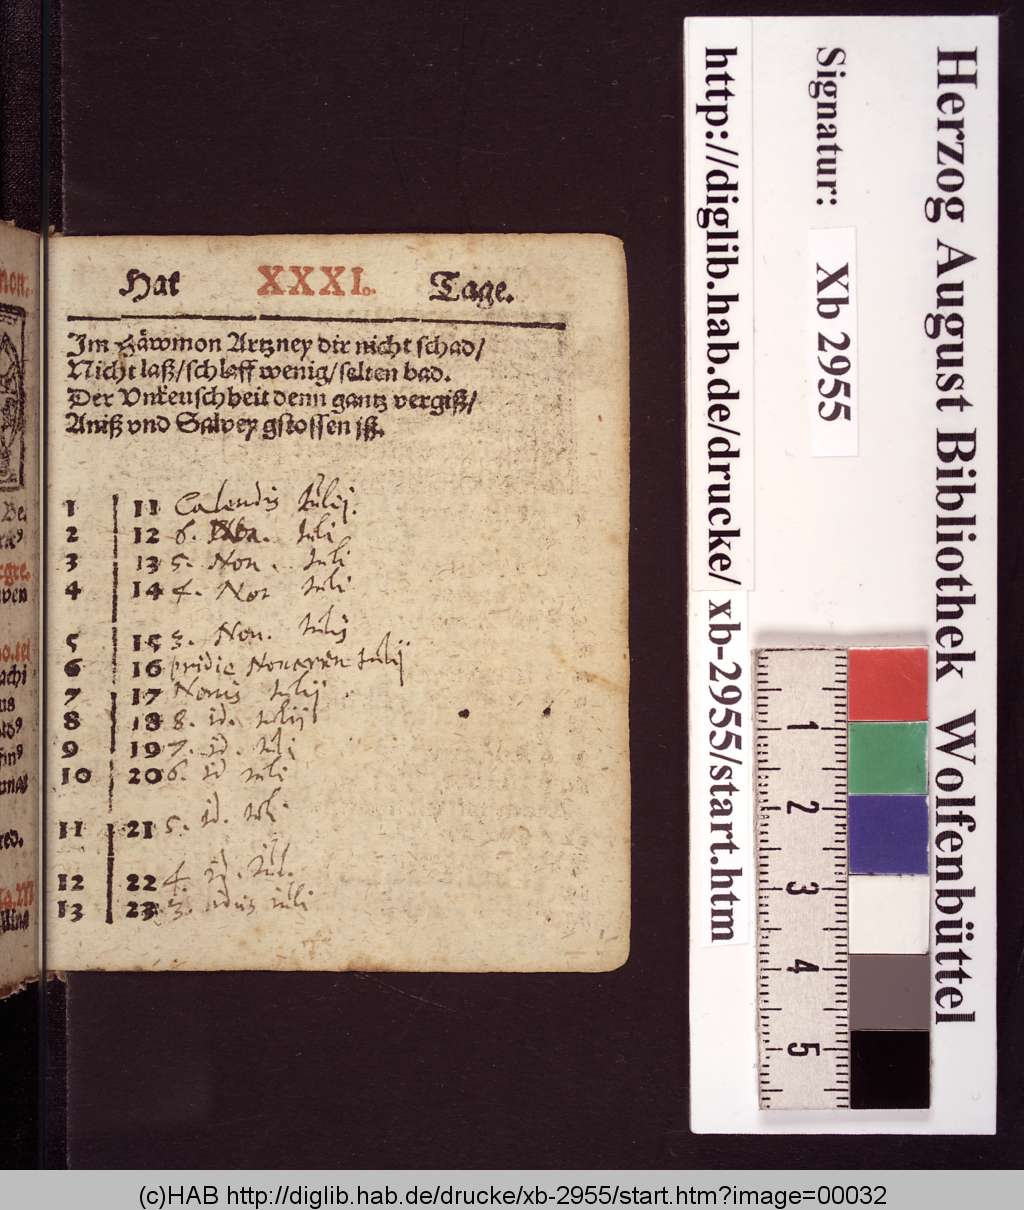 Hat XXXI. Tage.
Im Häwmon Artzney dir nicht schad/
Nicht laß/schlaff wenig/selten bad.
Der Vnkeuschheit denn gantz vergiß/
Aniß vnd Salvey gstossen iß.
1 11 Calendis Iulij.
2 12 6. Non. Iuli
3 13 5. Non. Iuli
4 14 4. Non Iuli
5 15 3. Non. Iulij
6 16 pridie Nonarum Iulij
7 17 Nonis Iulij
8 18 8. id. Iulij
9 19 7. id. Iuli
10 20 6. id Iuli
11 21 5. id. Iuli
12 22 4. id. Iul.
13 23 3. idus iuli
Herzog August Bibliothek Wolfenbüttel
Signatur: Xb 2955
http://diglib.hab.de/drucke/ xb-2955/start.htm
1 2 3 4 5
(c)HAB http://diglib.hab.de/drucke/xb-2955/start.htm?image=00032